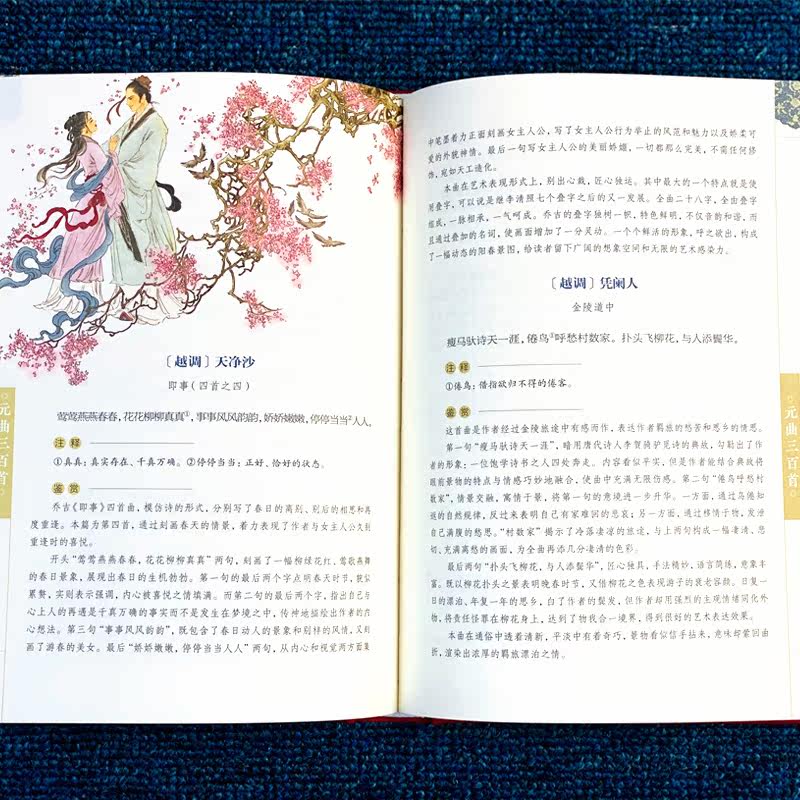 〔越调〕天净沙
即事（四首之四）
莺莺燕燕春春，花花柳柳真真①，事事风风韵韵，娇娇嫩嫩，停停当当②人人。
注释
①真真：真实存在、千真万确。②停停当当：正好、恰好的状态。
鉴赏
乔吉《即事》四首曲，模仿诗的形式，分别写了春日的离别、别后的相思和再
度重逢。本篇为第四首，通过刻画春天的情景，着力表现了作者与女主人公久别
重逢时的喜悦。
开头“莺莺燕燕春春，花花柳柳真真”两句，刻画了一幅柳绿花红、莺歌燕舞
的春日景象，展现出春日的生机勃勃。第一句的最后两个字点明春天时节，貌似
累赘，实则表示强调，内心被喜悦之情填满。而第二句的最后两个字，指出自己与
心上人的再遇是千真万确的事实而不是发生在梦境之中，传神地描绘出作者的内
心想法。第三句“事事风风韵韵”，既包含了春日动人的景象和别样的风情，又刻
画了游春的美女。最后“娇娇嫩嫩，停停当当人人”两句，从内心和视觉两方面集
元曲三百首
中笔墨着力正面刻画女主人公，写了女主人公行为举止的风范和魅力以及娇柔可
爱的外貌神情。最后一句写女主人公的美丽娇媚，一切都那么完美，不需任何修
饰，宛如天工造化。
本曲在艺术表现形式上，别出心裁，匠心独运。其中最大的一个特点就是使
用叠字，可以说是继李清照七个叠字之后的又一发展。全曲二十八字，全由叠字
组成，一脉相承，一气呵成。乔吉的叠字独树一帜，特色鲜明，不仅音韵和谐，而
且通过叠加的名词，使画面增加了一分灵动。一个个鲜活的形象，呼之欲出，构成
了一幅动态的阳春景图，给读者留下广阔的想象空间和无限的艺术感染力。
〔越调〕凭阑人
金陵道中
瘦马驮诗天一涯，倦鸟①呼愁村数家。扑头飞柳花，与人添鬓华。
注释
①倦鸟：借指欲归不得的倦客。
鉴赏
这首曲是作者经过金陵旅途中有感而作，表达作者羁旅的愁苦和思乡的情思。
第一句“瘦马驮诗天一涯”，暗用唐代诗人李贺骑驴觅诗的典故，勾勒出了作
者的形象：一位饱学诗书之人四处奔走。内容看似平实，但是作者能结合典故将
眼前景物的特点与情感巧妙地融合，使曲中充满无限伤感。第二句“倦鸟呼愁村
数家”，情景交融，寓情于景，将第一句的意境进一步升华。一方面，通过鸟倦知
返的自然规律，反过来表明自己有家难回的悲哀；另一方面，通过移情于物，发泄
自己满腹的愁思。“村数家”揭示了冷落凄凉的旅途，与上两句构成一幅凄清、悲
切、充满离愁的画面，为全曲再添几分凄清的色彩。
最后两句“扑头飞柳花，与人添鬓华”，匠心独具，手法精妙，语言简练，意象丰
富。既以柳花扑头之景表明晚春时节，又借柳花之色表现游子的衰老容颜。日复一
日的漂泊、年复一年的思乡，白了作者的鬓发，但作者却用强烈的主观情绪同化外
物，将责任怪罪在柳花身上，达到了物我合一境界，得到很好的艺术表达效果。
本曲在通俗中透着清新，平淡中有着奇巧，景物看似信手拈来，意味却萦回曲
折，渲染出浓厚的羁旅漂泊之情。
元曲三百首